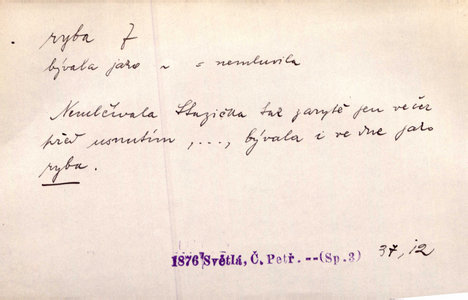 ryba f
bývala jako ~ = nemluvila
Nemlčívala Stazička tak zarytě jen večer
před usnutím, ..., bývala i ve dne jako
ryba.
1876 Světlá, Č. Petř. --(Sp.3) 37,12